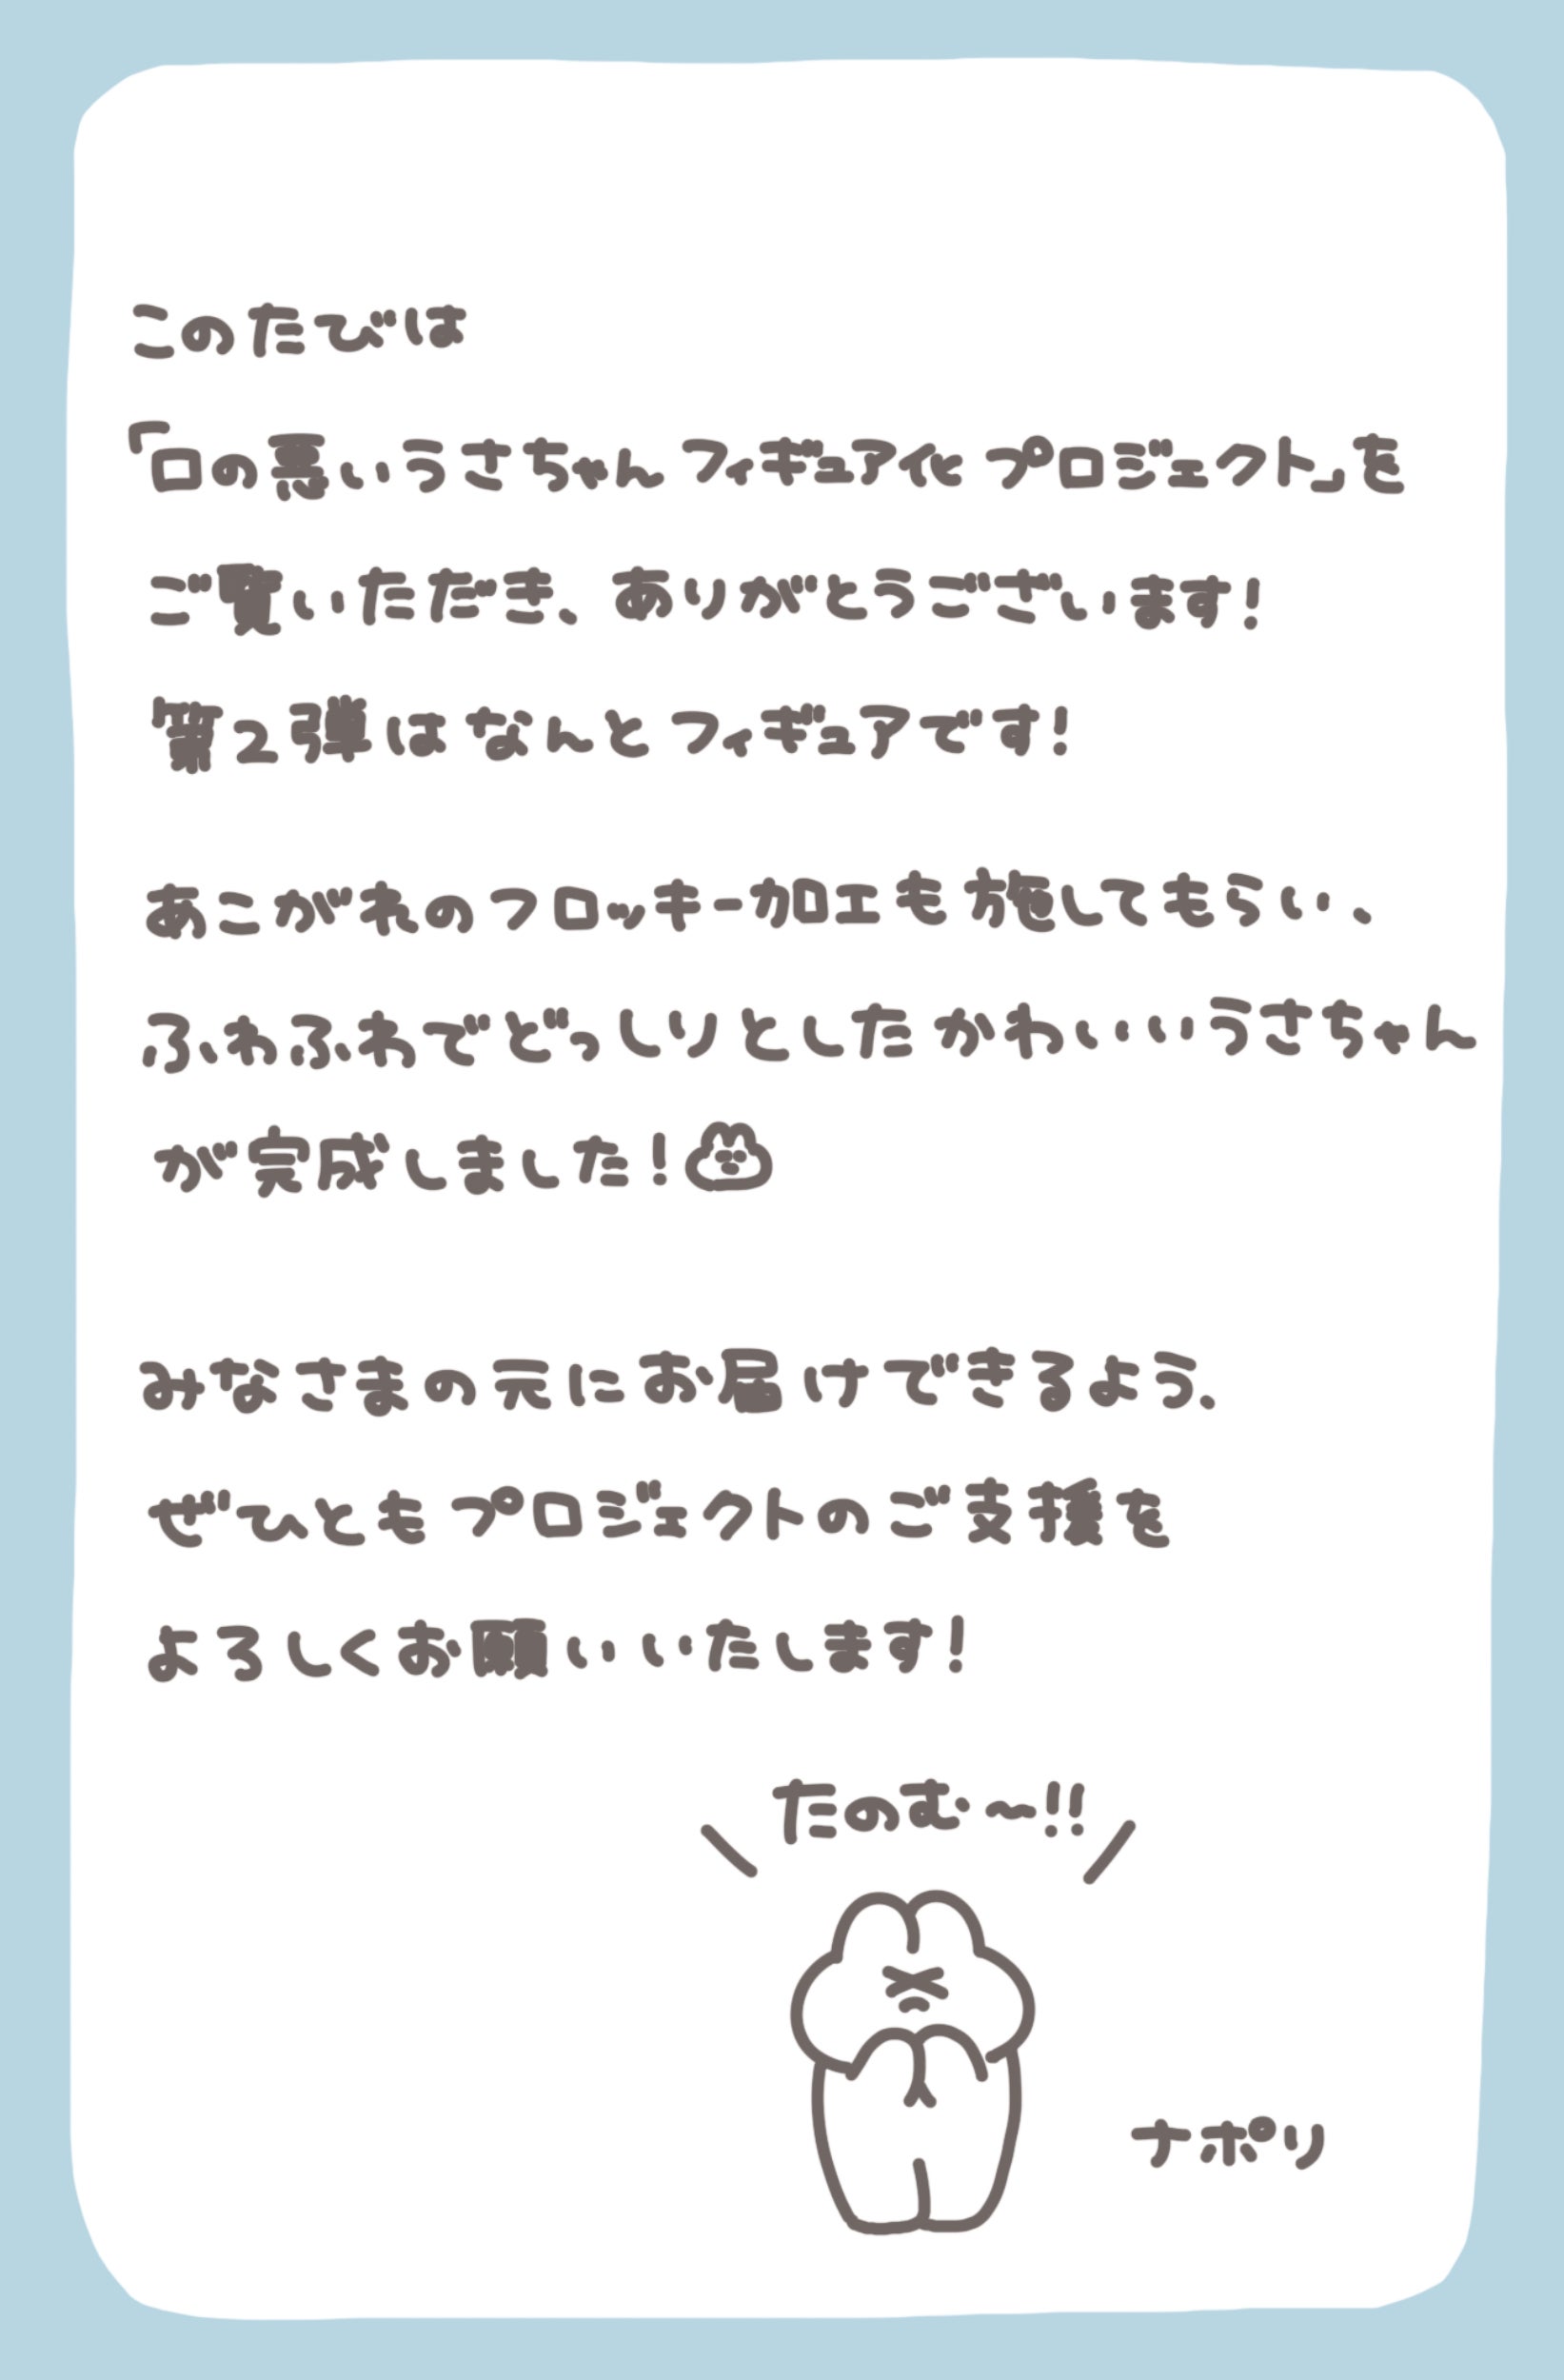 このたびは
「口の悪いうさちゃんフィギュア化プロジェクト」を
ご覧いただき、ありがとうございます!
第2弾はなんとフィギュアです!
あこがれのフロッキー加工も施してもらい、
ふわふわでどっしりとしたかわいいうさちゃん
が完成しました!
みなさまの元にお届けできるよう、
ぜひともプロジェクトのご支援を
よろしくお願いいたします!
たのむ〜!!
ナポリ